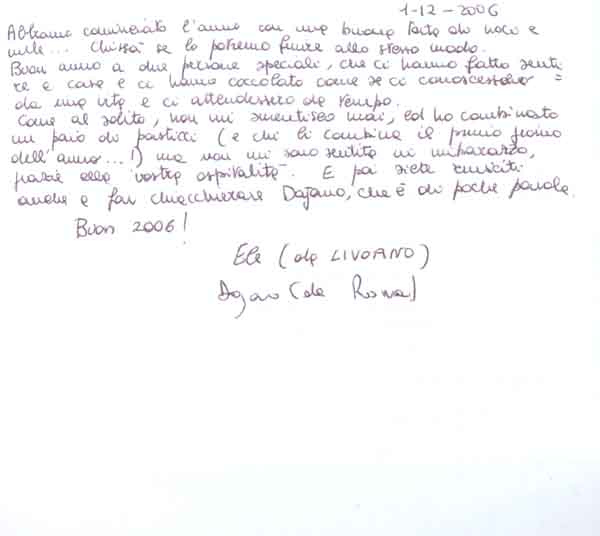 1-12-2006
Abbiamo cominciato l'anno con una buona torta di noci e
mele... Chissà se lo potremo finire allo stesso modo.
Buon anno a due persone speciali, che ci hanno fatto senti
re a casa e ci hanno coccolato come se ci conoscessero
da una vita e ci attendessero da tempo.
Come al solito, non mi smentisco mai, ed ho combinato
un paio di pasticci (e chi li combina il primo giorno
dell'anno...!) ma non mi sono sentita in imbarazzo,
grazie alla vostra ospitalità. E poi siete riusciti
anche a far chiacchierare Dajano, che è di poche parole.
Buon 2006!
Ele (da LIVORNO)
(da Roma)